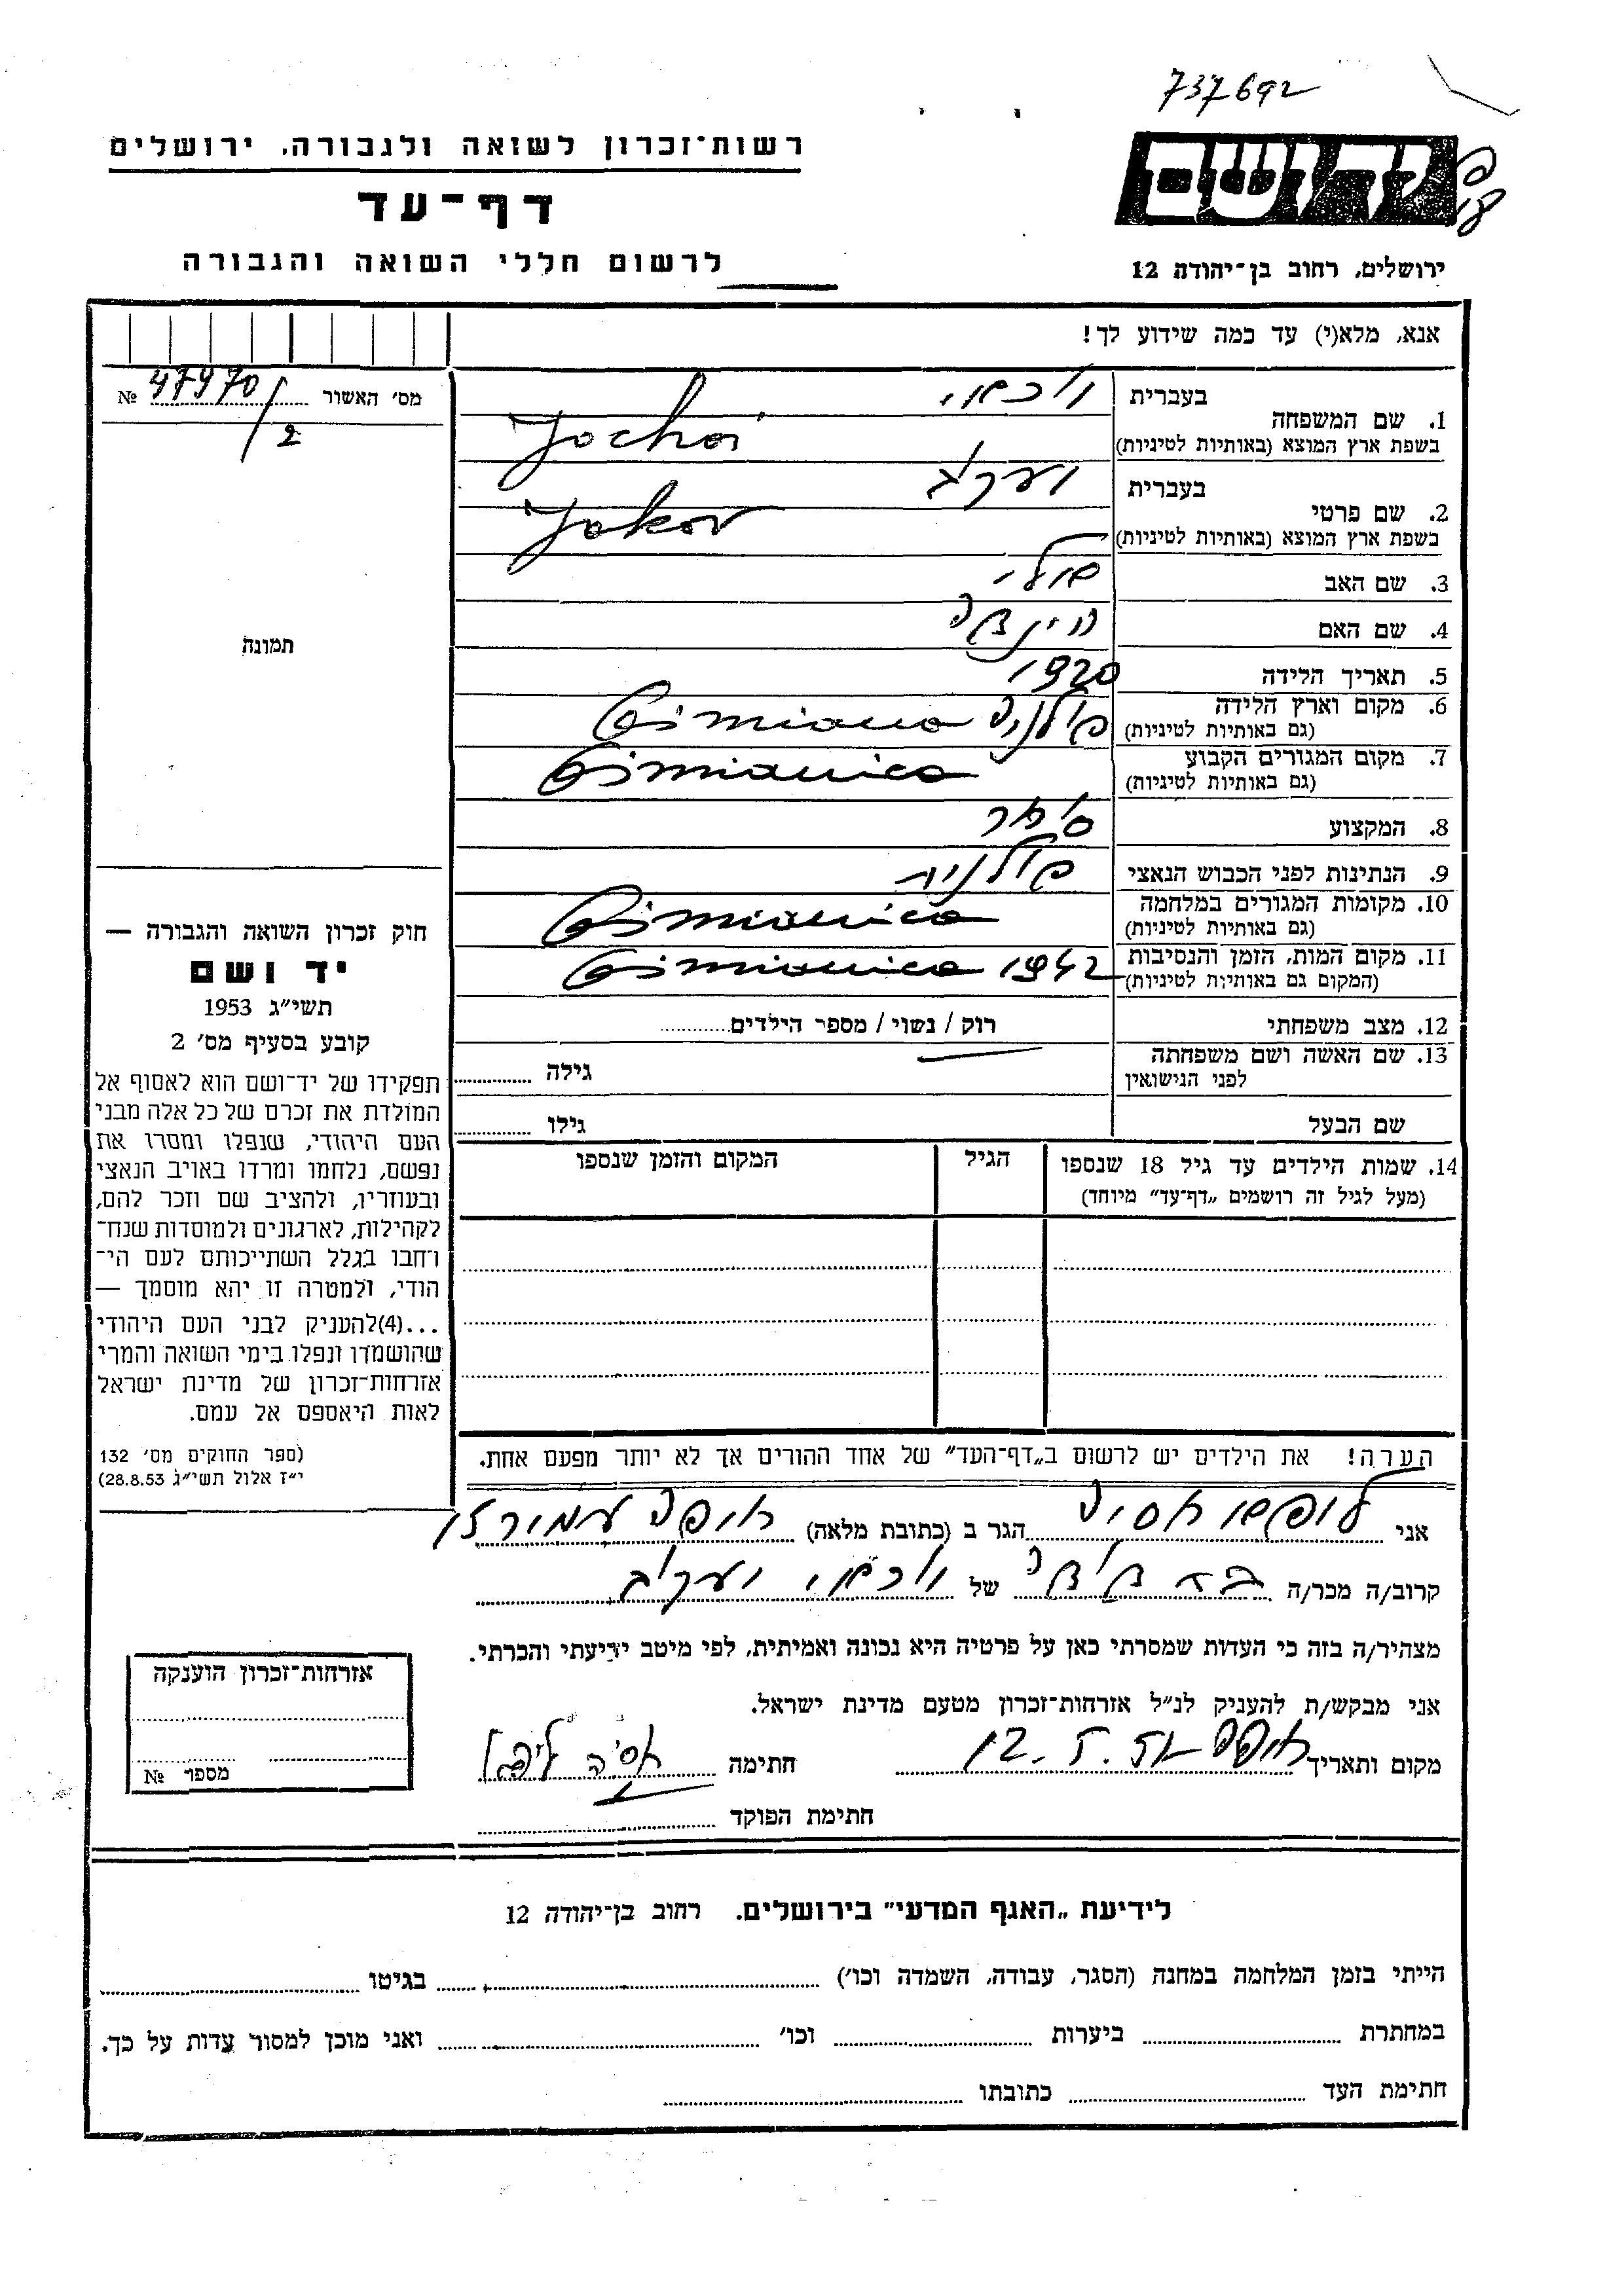 737692
רשות־זכרון לשואה ולגבורה, ירושלים
יד ושם
דף־עד
לרשום חללי השואה והגבורה
ירושלים, רחוב בן־יהודה 12
אנא, מלא(י) עד כמה שידוע לך!
מס׳ האשור № 47970/2
בעברית יוכאי
1. שם המשפחה
בשפת ארץ המוצא (באותיות לטיניות) Jochai
בעברית יעקב
2. שם פרטי
בשפת ארץ המוצא (באותיות לטיניות) Jakov
3. שם האב
4. שם האם
תמונה
5. תאריך הלידה 1920
6. מקום וארץ הלידה פולניה
(גם באותיות לטיניות)
7. מקום המגורים הקבוע
(גם באותיות לטיניות)
8. המקצוע
9. הנתינות לפני הכבוש הנאצי פולנית
10. מקומות המגורים במלחמה
(גם באותיות לטיניות)
11. מקום המות, הזמן והנסיבות 1942
(המקום גם באותיות לטיניות)
12. מצב משפחתי רוק / נשוי / מספר הילדים
13. שם האשה ושם משפחתה
לפני הנישואין גילה
שם הבעל גילו
14. שמות הילדים עד גיל 18 שנספו הגיל המקום והזמן שנספו
(מעל לגיל זה רושמים „דף־עד” מיוחד)
חוק זכרון השואה והגבורה —
יד ושם
תשי״ג 1953
קובע בסעיף מס׳ 2
תפקידו של יד־ושם הוא לאסוף אל
המולדת את זכרם של כל אלה מבני
העם היהודי, שנפלו ומסרו את
נפשם, נלחמו ומרדו באויב הנאצי
ובעוזריו, ולהציב שם וזכר להם,
לקהילות, לארגונים ולמוסדות שנח־
רבו בגלל השתייכותם לעם הי־
הודי, ולמטרה זו יהא מוסמך —
...(4)להעניק לבני העם היהודי
שהושמדו ונפלו בימי השואה והמרי
אזרחות־זכרון של מדינת ישראל
לאות היאספם אל עמם.
(ספר החוקים מס׳ 132
י״ז אלול תשי״ג 28.8.53)
הערה! את הילדים יש לרשום ב„דף־העד” של אחד ההורים אך לא יותר מפעם אחת.
אני הגר ב (כתובת מלאה)
קרוב/ה מכר/ה של יוכאי יעקב
מצהיר/ה בזה כי העדות שמסרתי כאן על פרטיה היא נכונה ואמיתית, לפי מיטב ידיעתי והכרתי.
אני מבקש/ת להעניק לנ״ל אזרחות־זכרון מטעם מדינת ישראל.
מקום ותאריך חתימה
חתימת הפוקד
אזרחות־זכרון הוענקה
מספר №
לידיעת „האגף המדעי” בירושלים. רחוב בן־יהודה 12
הייתי בזמן המלחמה במחנה (הסגר, עבודה, השמדה וכו׳) בגיטו
במחתרת ביערות וכו׳ ואני מוכן למסור עדות על כך.
חתימת העד כתובתו